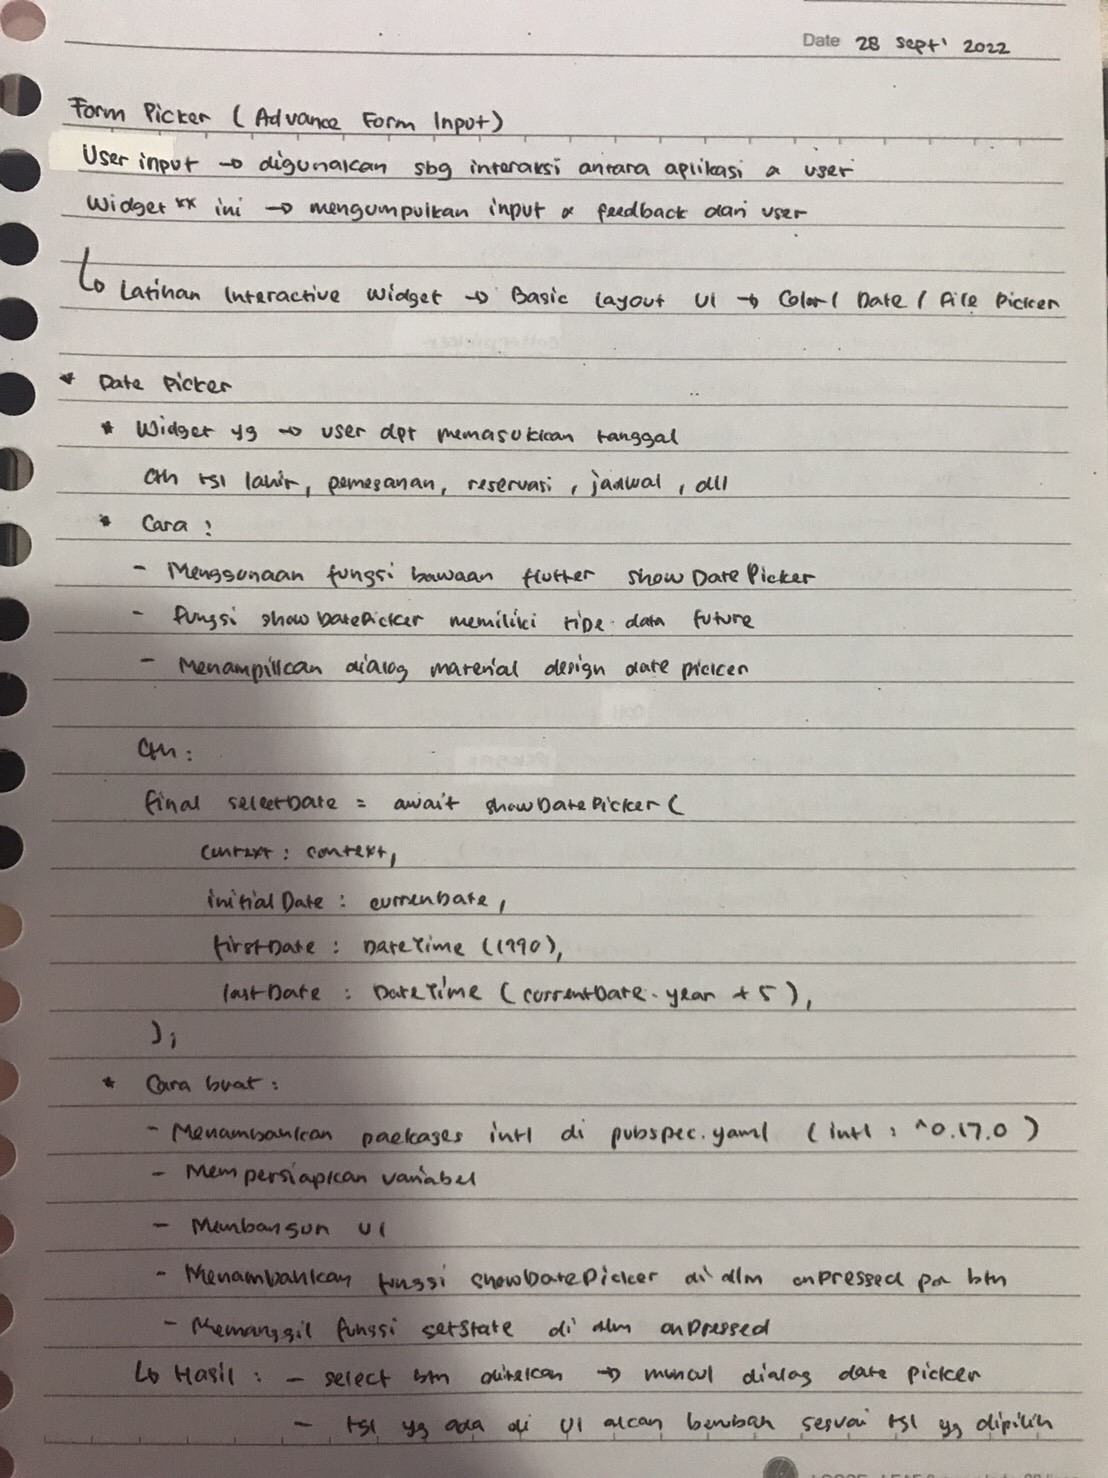 Date 28 Sept' 2022
Form Picker ( Advance Form Input)
User input → digunakan sbg interaksi antara aplikasi & user
Widget ** ini → mengumpulkan input & feedback dari user
↳ Latihan Interactive Widget → Basic Layout UI → Color / Date / File Picker
* Date Picker
* Widget yg → user dpt memasukkan tanggal
Cth tgl lahir, pemesanan, reservasi, jadwal, dll
* Cara :
- Menggunaan fungsi bawaan flutter showDatePicker
- fungsi showDatePicker memiliki tipe data future
- Menampilkan dialog material design date picker
Cth :
final selectDate = await showDatePicker (
context : context,
initialDate : currenDate,
firstDate : DateTime (1990),
lastDate : DateTime ( currentDate.year + 5 ),
);
* Cara buat :
- Menambahkan packages intl di pubspec.yaml ( intl : ^0.17.0 )
- Mempersiapkan variabel
- Membangun UI
- Menambahkan fungsi showDatePicker di dlm onPressed pd btn
- Memanggil fungsi setState di dlm onPressed
↳ Hasil : - select btn ditekan → muncul dialog date picker
- tgl yg ada di UI akan berubah sesuai tgl yg dipilih